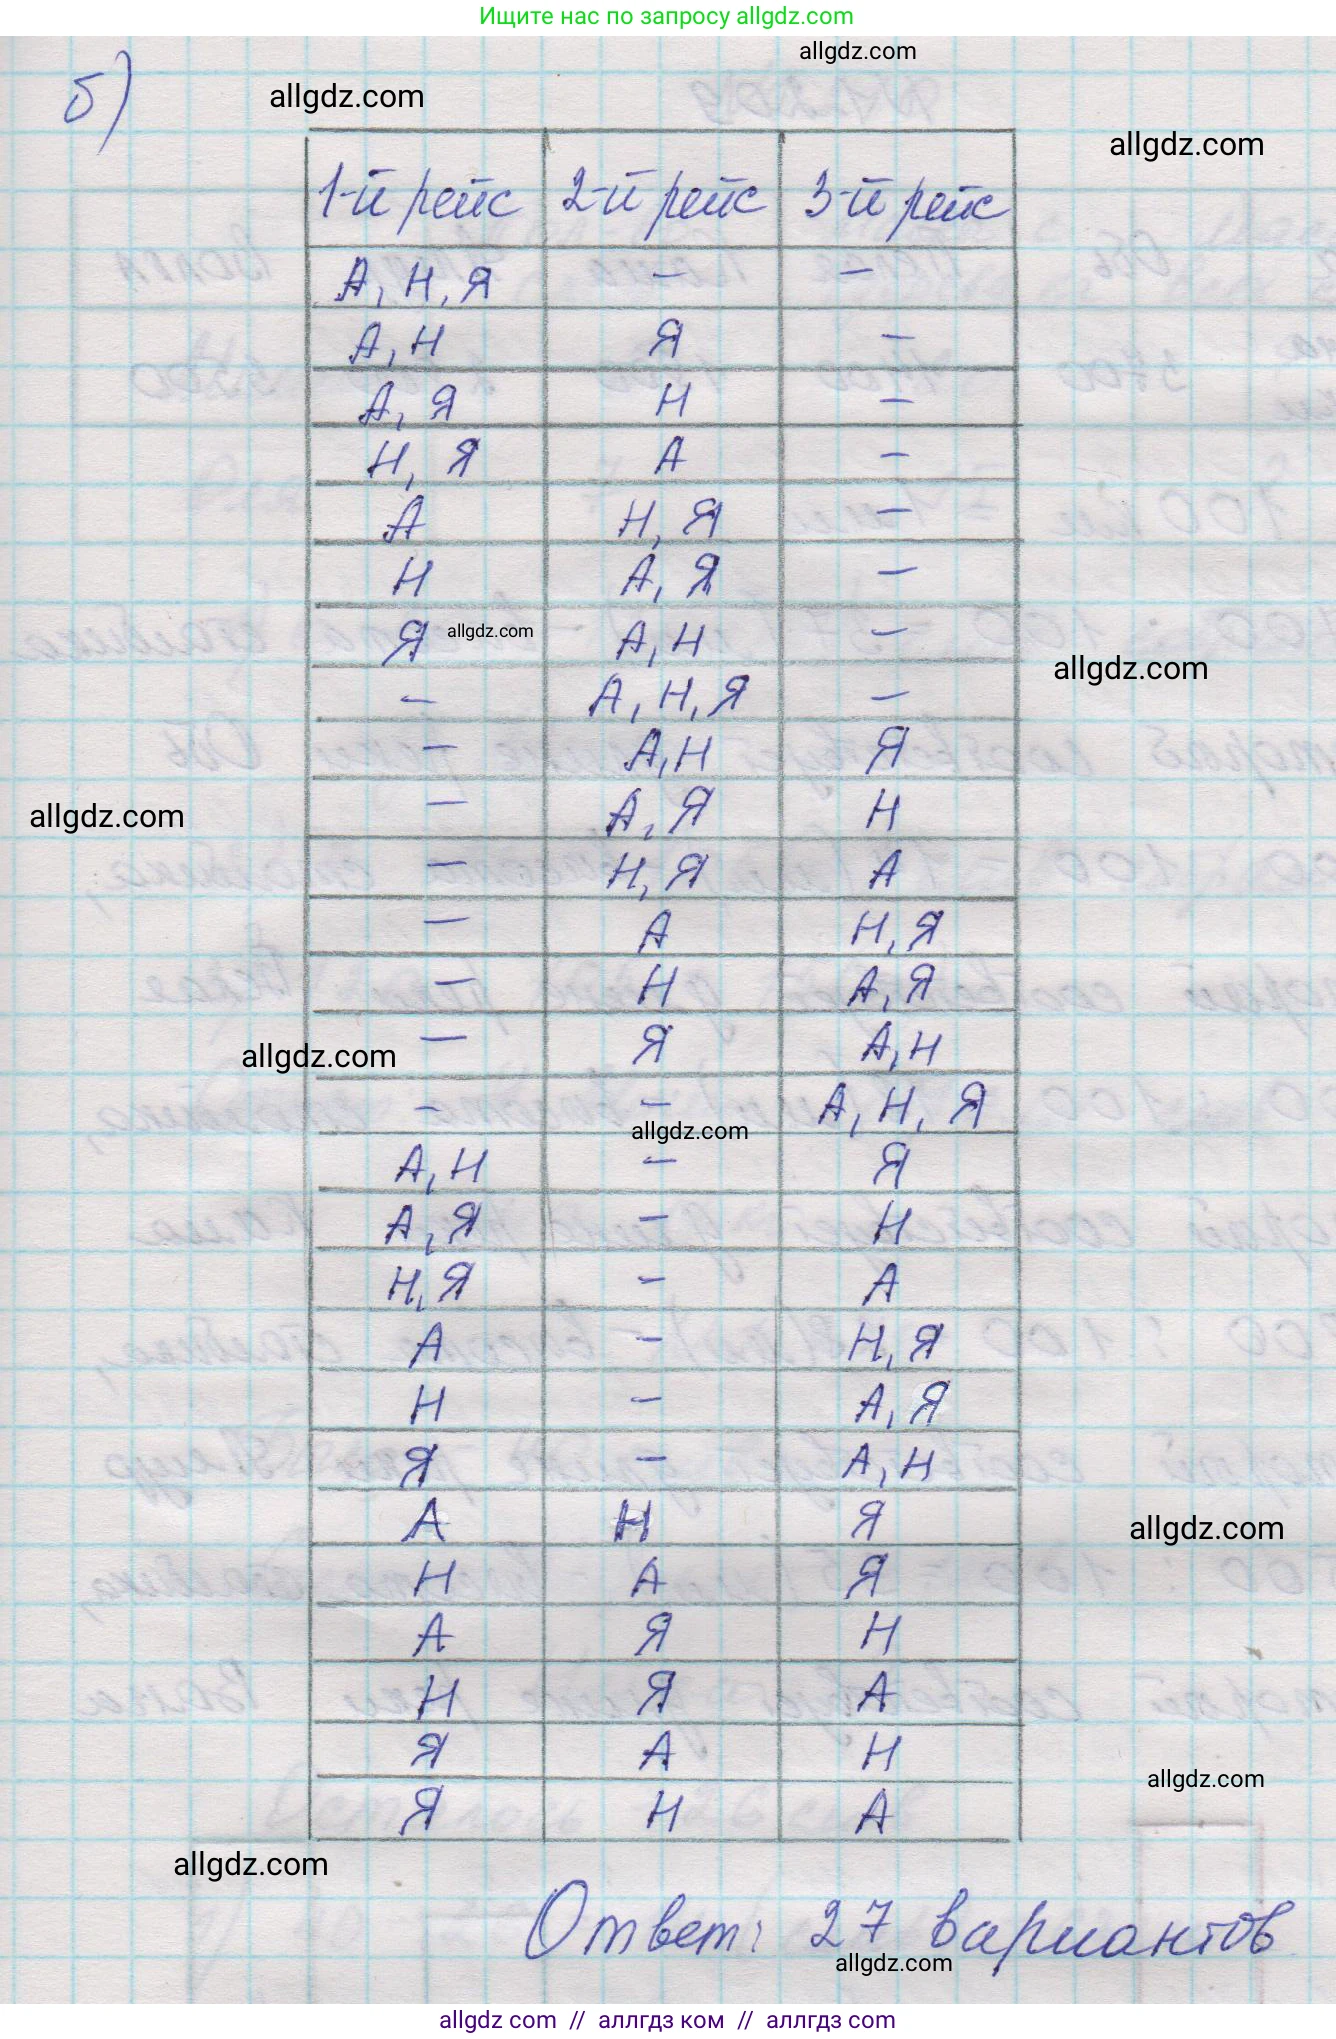 Ищите нас по запросу allgdz.com
allgdz.com
б)
allgdz.com
allgdz.com
1-й рейс 2-й рейс 3-й рейс
А, Н, Я – –
А, Н Я –
А, Я Н –
Н, Я А –
А Н, Я –
Н А, Я –
Я allgdz.com А, Н –
allgdz.com
– А, Н, Я –
– А, Н Я
– А, Я Н
allgdz.com
– Н, Я А
– А Н, Я
– Н А, Я
– Я А, Н
allgdz.com
– – А, Н, Я
allgdz.com
А, Н – Я
А, Я – Н
Н, Я – А
А – Н, Я
Н – А, Я
Я – А, Н
А Н Я
allgdz.com
Н А Я
А Я Н
Н Я А
Я А Н
allgdz.com
Я Н А
allgdz.com
Ответ: 27 вариантов
allgdz.com
allgdz.com // аллгдз ком // аллгдз.com